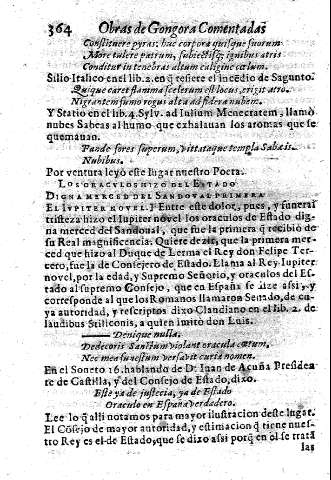 364 Obras de Gongora Comentadas
Constituere pyras; huc corpora quisque suorum
More tulere patrum, subiectisq; ignibus atris
Conditur in tenebras altum caligine cœlum.
Silio Italico en el lib. 2. en q̃ refiere el incẽdio de Sagunto.
Quique caret flamma scelerum est locus, erigit atro.
Nigrantem fumo rogus alta ad sidera nubem.
Y Statio en el lib. 4. Sylv. ad Iulium Menecratem, llamò
nubes Sabeas al humo que exhalauan los aromas que se
quemauan.
Pande fores superum, vittataque templa Sabæis
Nubibus.
Por ventura leyò este lugar nuestro Poeta.
LOS ORACVLOS HIZO DEL ESTADO
DIGNA MERCED DEL SANDOVAL PRIMERA
EL IVPITER NOVEL.] Entre este dolor, pues, y funeral
tristeza hizo el Iupiter novel los oraculos de Estado dig
na merced del Sandoual, que fue la primera q̃ recibiò de
su Real magnificencia. Quiere dezir, que la primera mer-
ced que hizo al Duque de Lerma el Rey don Felipe Ter-
cero, fue la de Consejero de Estado. Llama al Rey Iupiter
novel, por la edad, y Supremo Señorio, y oraculos del Es-
tado al supremo Consejo, que en España se dize assi, y
corresponde al que los Romanos llamaron Senado, de cu-
ya autoridad, y rescriptos dixo Claudiano en el lib. 2. de
laudibus Stiliconis, a quien imitò don Luis.
Denique nulla
Dedecoris Sanctum violant oracula cœtum,
Nec mea funestum versavit curia nomen.
En el Soneto 16. hablando de D. Iuan de Acuña Preside-
te de Castilla, y del Consejo de Estado, dixo.
Este ya de justicia, ya de Estado
Oraculo en España verdadero.
Lee lo q̃ alli notamos para mayor ilustracion deste lugar.
El Cõsejo de mayor autoridad, y estimacion q̃ tiene nues-
tro Rey es el de Estado, que se dixo assi porq̃ en èl se tratã
las